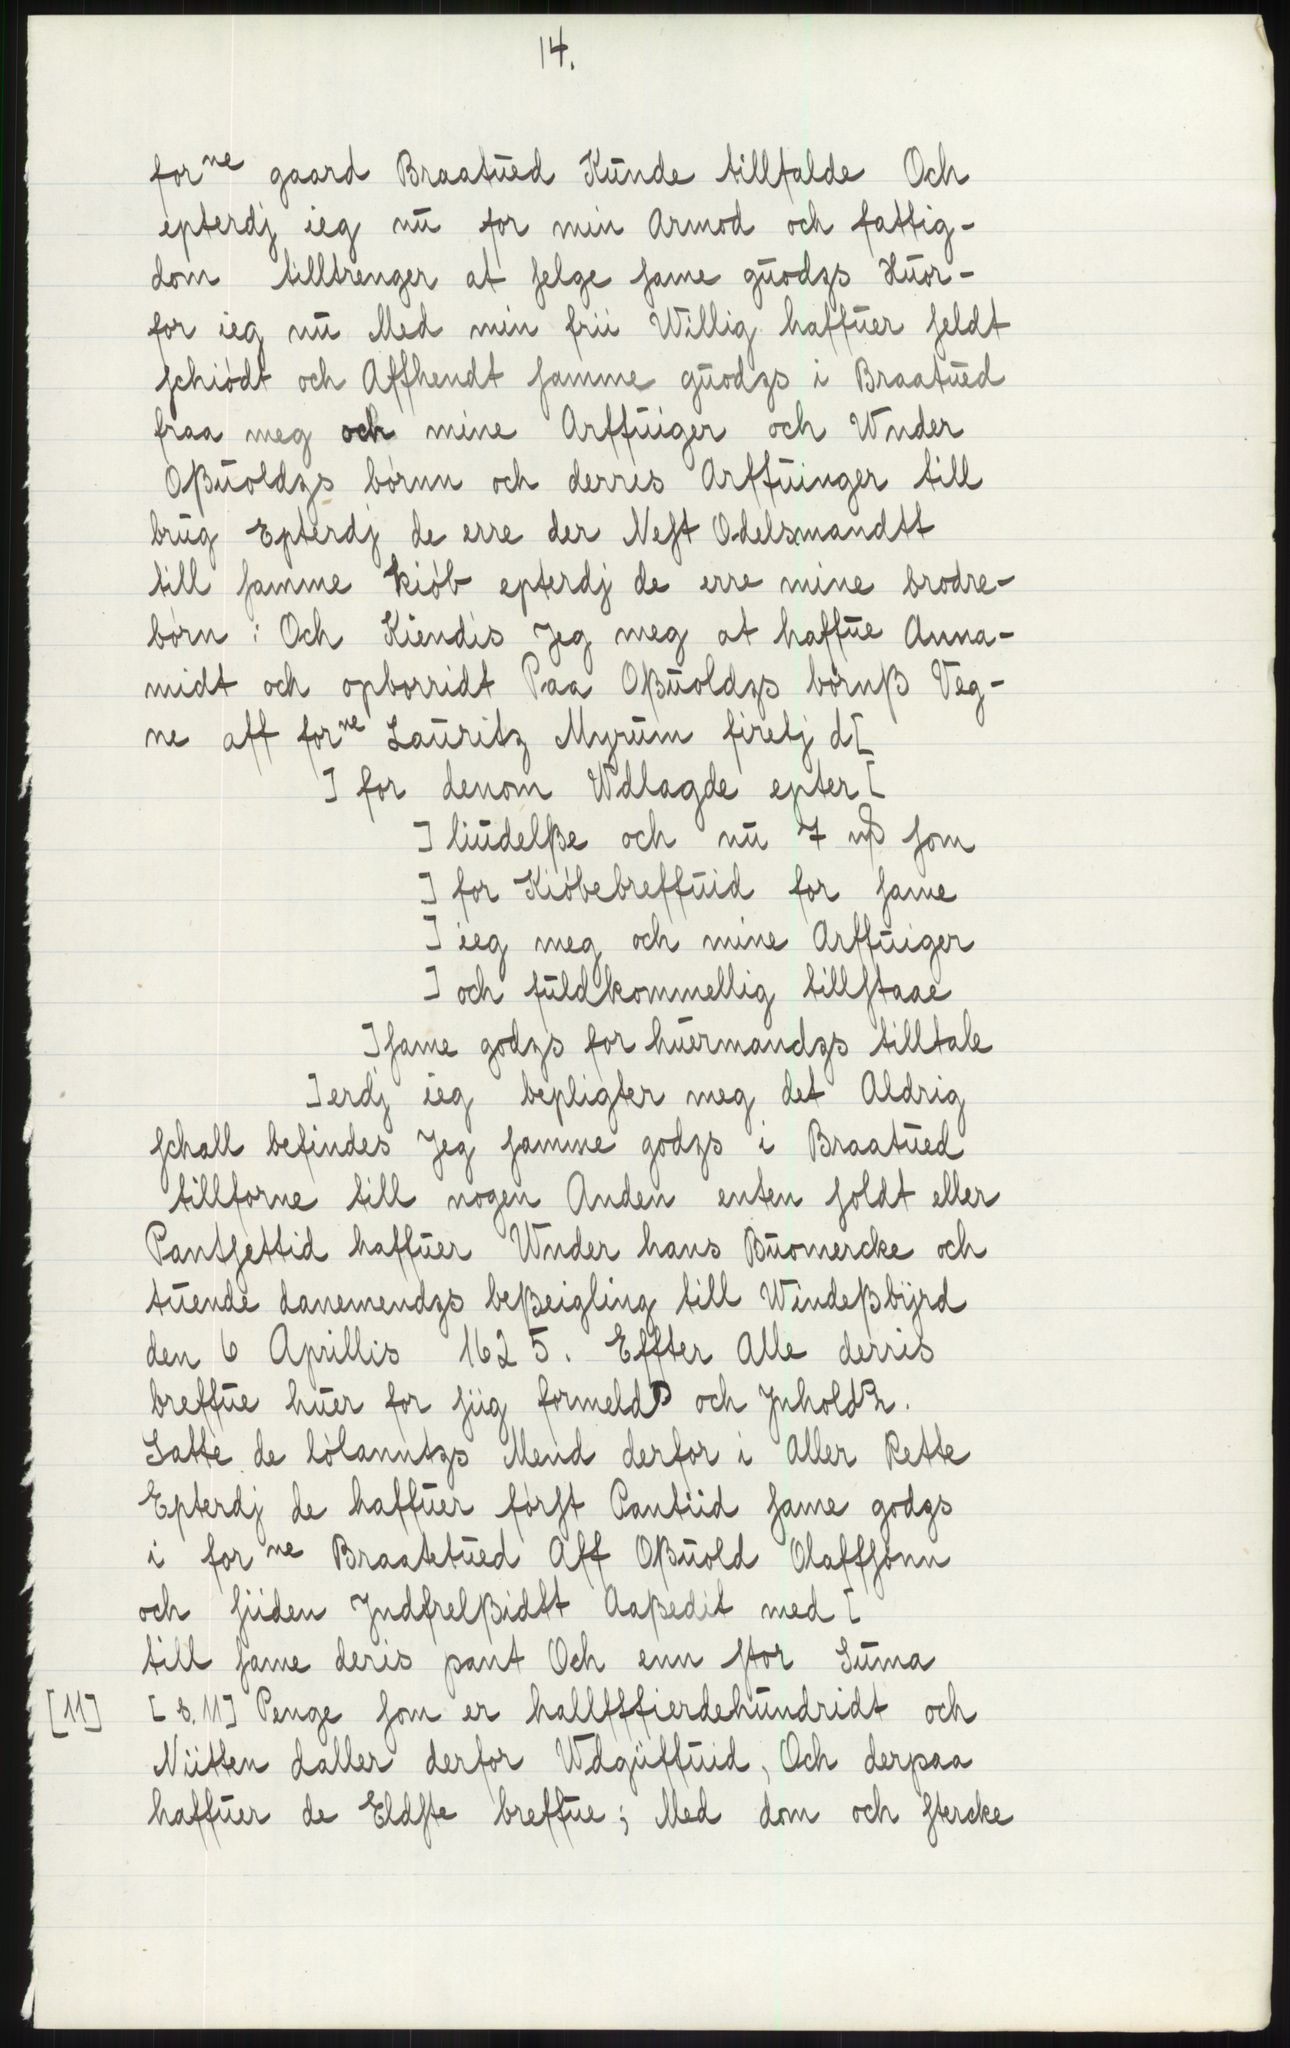 14.
forne gaard Braatued Kunde tillfalde Och
epterdj ieg nu for min Armod och fattig-
dom tilltrenger at selge same guodzs Huor-
for ieg nu Med min frii Willig haffuer seldt
schiödt och Affhendt samme guodzs i Braatued
fraa meg och mine Arffuiger och Wnder
Oßuoldzs börnn och derris Arffuinger till
brug Epterdj de erre der Nest Odelsmandtt
till samme kiöb epterdj de erre mine brodre-
börn : Och Kiendis Jeg meg at haffue Anna-
midt och opborridt Paa Oßuoldzs börnß Veg-
ne aff forne Lauritz Myrum firetj d[
] for denom Wdlagde epter [
] liudelße och nu 7 som
] for Kiöbebreffuid for same
] ieg meg och mine Arffuiger
] och fuldkommellig tillstaae
] same godzs for huermandzs tilltale
] erdj ieg bepligter meg det Aldrig
schall befindes Jeg samme godzs i Braatued
tillforne till nogen Anden enten soldt eller
Pantsettid haffuer Wnder hans Buomercke och
tuende danemendzs beßeigling till Windeßbÿrd
den 6 Aprillis 1625. Effter Alle derris
breffue huer for siig formeld och Jnhold.
Satte de lölanntzs Mend derfor i Aller Rette
Epterdj de haffuer först Pantiid same godzs
i forne Braatetued Aff Oßuold Olaffsönn
och siiden Jndfrelßidtt Aaßedit med [
till same deris pant Och enn stor Suma
[11] [s. 11] Penge som er hallfffierdehundridt och
Niitten daller derfor Wdgüffuid, Och derpaa
haffuer de Eldste breffue; Med dom och stercke